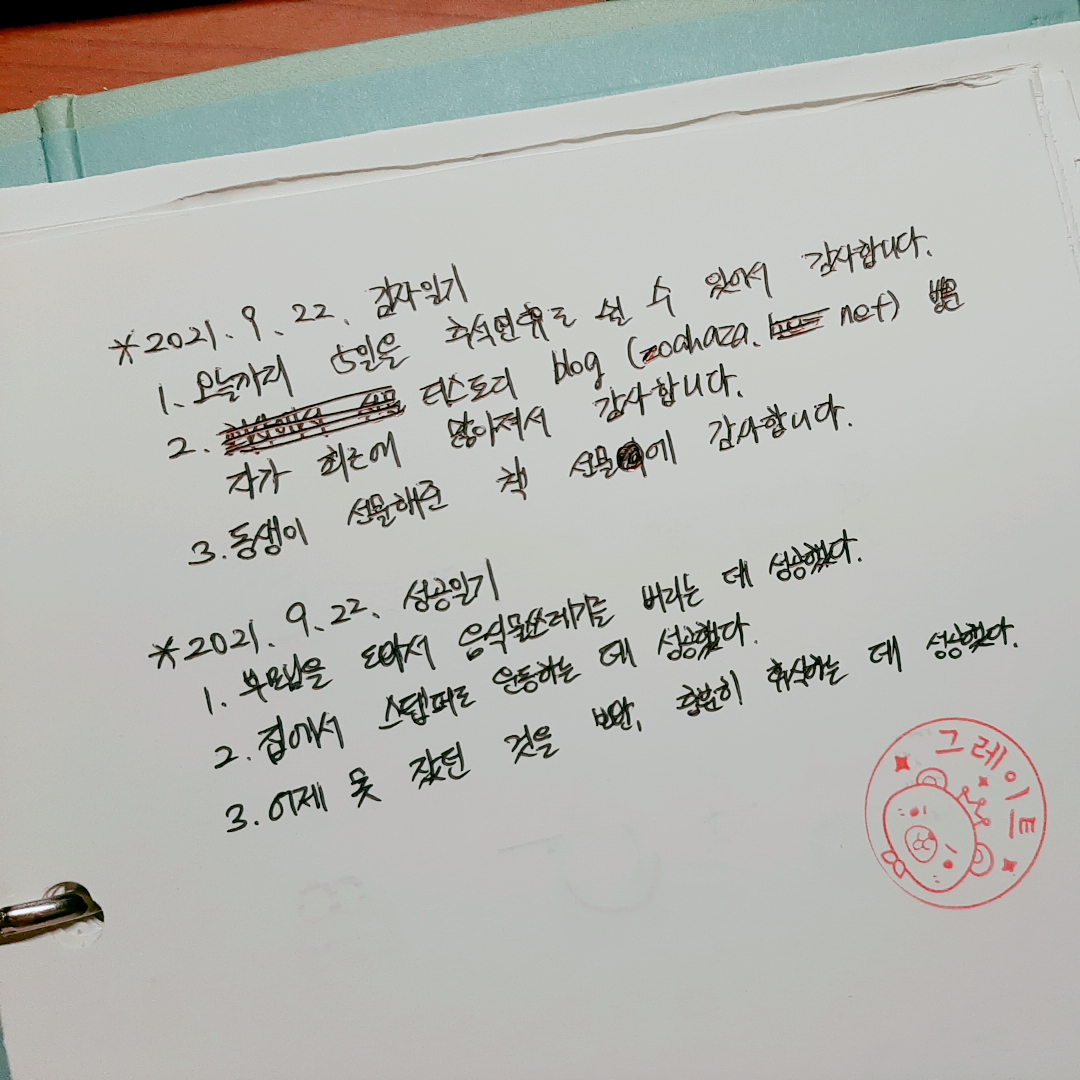 *2021. 9. 22. 감사일기
1. 오늘까지 5일을 추석연휴로 쉴 수 있어서 감사합니다.
2. 티스토리 blog (zoahaza. net) 방문
자가 최근에 많아져서 감사합니다.
3. 동생이 선물해준 책 선물에 감사합니다.
*2021. 9. 22. 성공일기
1. 부모님을 도와서 음식물쓰레기를 버리는 데 성공했다.
2. 집에서 스텝퍼로 운동하는 데 성공했다.
3. 어제 못 잤던 것을 보완, 충분히 휴식하는 데 성상했다.
그레이트